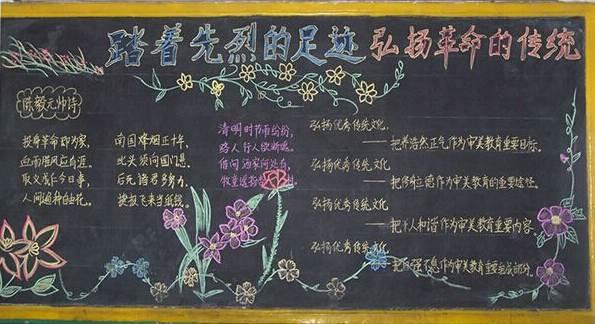 踏着先烈的足迹 弘扬革命的传统
陈毅元帅诗
投身革命即为家，
血雨腥风应有涯。
取义成仁今日事，
人间遍种自由花。
南国烽烟正十年，
此头须向国门悬。
后死诸君多努力，
捷报飞来当纸钱。
清明时节雨纷纷，
路人行人欲断魂。
借问酒家何处有，
牧童遥指
弘扬优秀传统文化，
——把养浩然正气作为审美教育重要目标。
弘扬优秀传统文化，
——把修身立德作为审美教育的重要途径。
弘扬优秀传统文化，
——把天人和谐作为审美教育重要内容。
弘扬优秀传统文化，
——把自强不息作为审美教育重要组成部分。